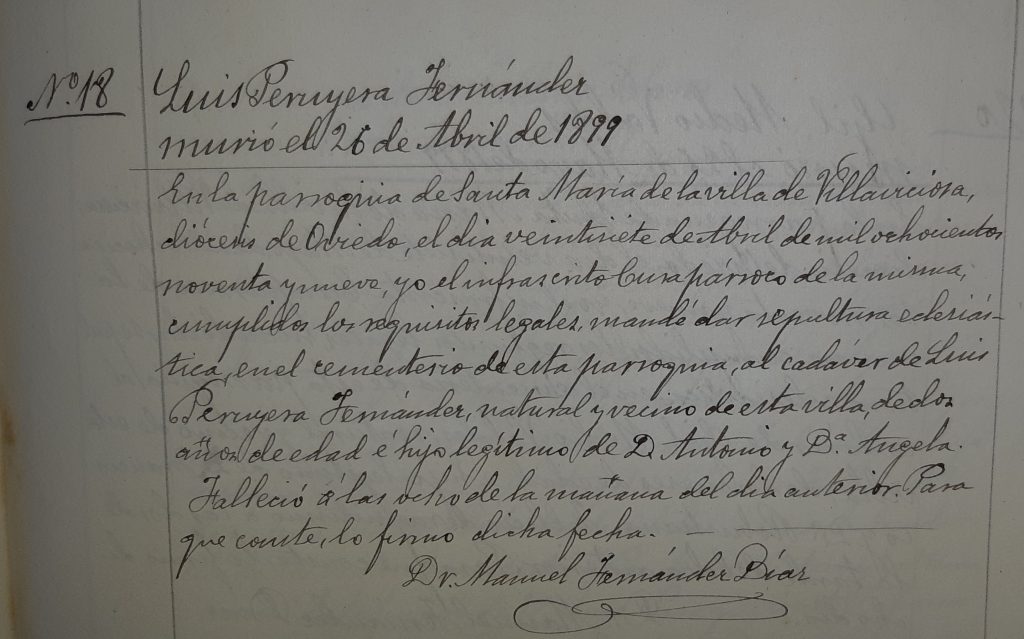 Nº. 18
Luis Peruyera Fernández
murió el 26 de Abril de 1899
En la parroquia de Santa María de la villa de Villaviciosa,
diócesis de Oviedo, el dia veintisiete de Abril de mil ochocientos
noventa y nueve, yo el infrascrito Cura párroco de la misma,
cumplidos los requisitos legales, mandé dar sepultura eclesiás-
tica, en el cementerio de esta parroquia, al cadáver de Luis
Peruyera Fernández, natural y vecino de esta villa, de dos
años de edad é hijo legítimo de D. Antonio y Dª. Angela.
Falleció á las ocho de la mañana del dia anterior. Para
que conste, lo firmo dicha fecha.
Dr. Manuel Fernández Díaz